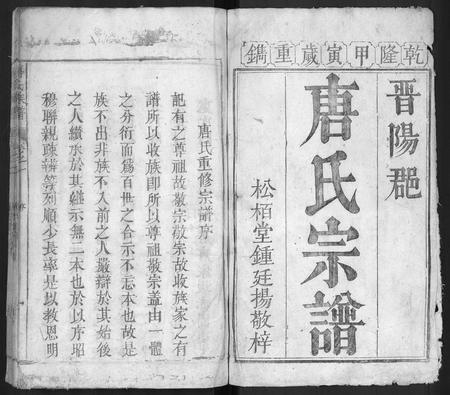 乾隆甲寅歲重鐫
晋陽郡
唐氏宗譜
松栢堂鍾廷揚敬梓
唐氏重修宗譜序
記有之尊祖故敬宗敬宗故收族家之有
譜所以收族即所以尊祖敬宗蓋由一體
之分衍而爲百世之合示不忘本也故是
族不出非族不入前之人嚴辯於其始後
之人纘承於其繼示無二本也於以序昭
穆聯親疎辯等列順少長率是以教恩明